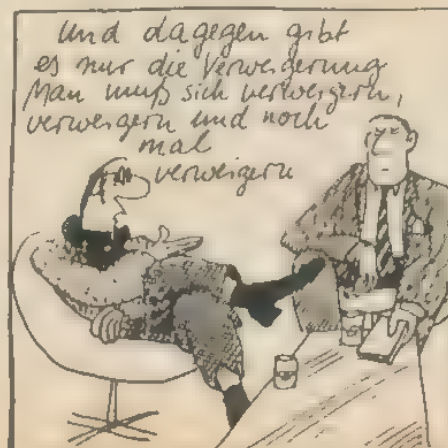 Und dagegen gibt
es nur die Verweigerung
Man muß sich verweigern,
verweigern und noch
mal
verweigern